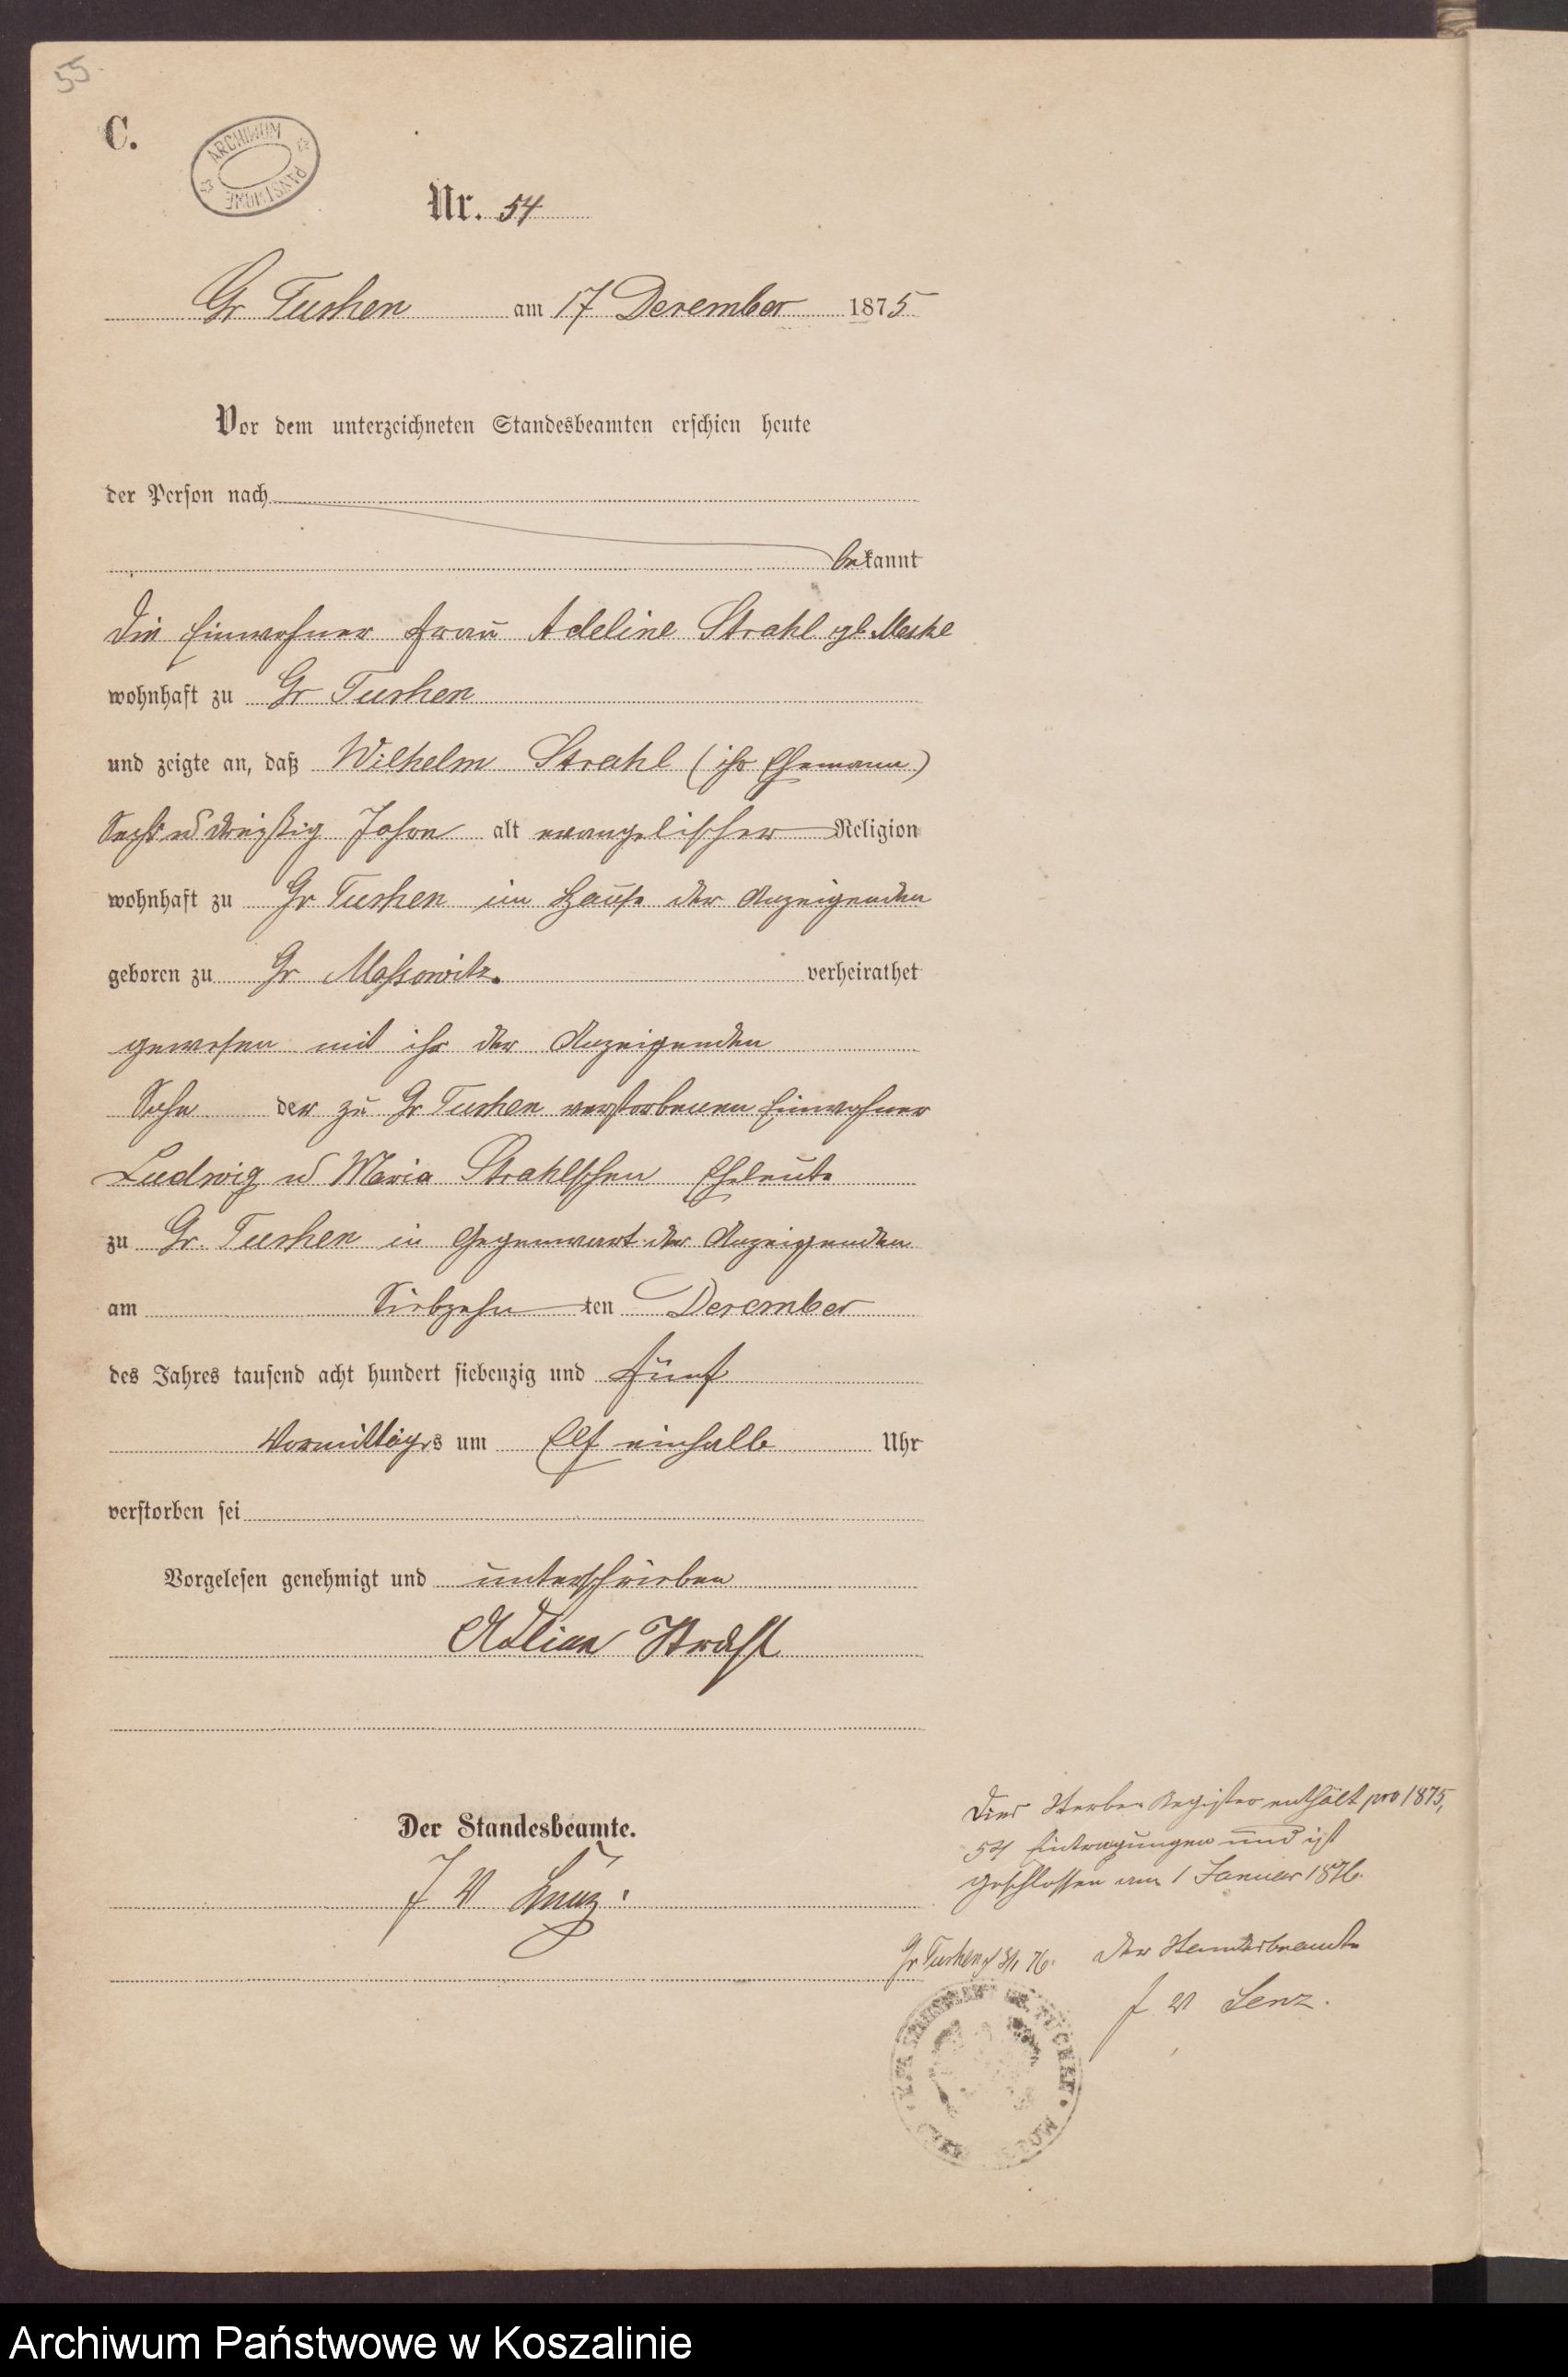 55
C.
ARCHIWUM PAŃSTWOWE
Nr. 54
Gr Tuchen am 17 December 1875
Vor dem unterzeichneten Standesbeamten erschien heute
der Person nach
bekannt
die Einwohner Frau Adeline Strahl gb Meske
wohnhaft zu Gr Tuchen
und zeigte an, daß Wilhelm Strahl (ihr Ehemann)
Sechs ud dreißig Jahre alt evangelischer Religion
wohnhaft zu Gr Tuchen im Hause der Anzeigenden
geboren zu Gr Massowitz. verheirathet
gewesen mit ihr der Anzeigenden
Sohn der zu Gr Tuchen verstorbenen Einwohner
Ludwig ud Maria Strahlschen Eheleute
zu Gr. Tuchen in Gegenwart der Anzeigenden
am Siebzehn ten December
des Jahres tausend acht hundert siebenzig und fünf
Vormittags um Elf einhalb Uhr
verstorben sei
Vorgelesen genehmigt und unterschrieben
Strahl
Der Standesbeamte.
F W Lenz.
Dies Sterbe-Register enthält pro 1875,
54 Eintragungen und ist
geschlossen am 1 Januar 1876.
Gr Tuchen d 3/1 76. Der Standesbeamte
F W Lenz.
TUCHEN
Archiwum Państwowe w Koszalinie